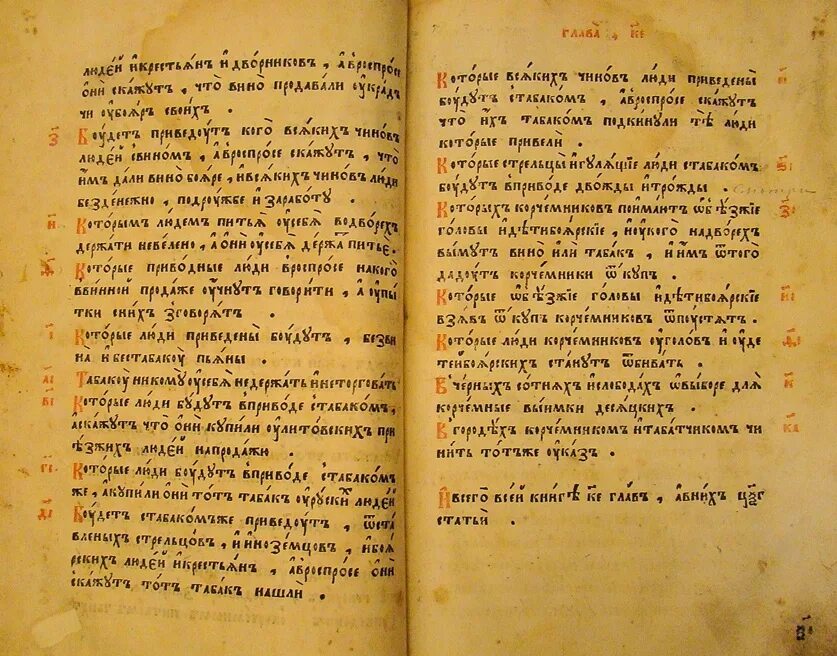 людей и крестьян и дворников , а в роспросе
они скажут , что вино продавали оукрад
чи оу бояр своих .
з҃ Боудет приведоут кого всяких чинов
людей с вином , а в роспросе скажут , что
им дали вино бояре , и всяких чинов люди
безденежно , по дроужбе и за работу .
и҃ Которым людем питья оу себя во дворех
держати не велено , а они оу себя держат питье .
ѳ҃ Которые приводные люди в роспросе на кого
в винной продаже оучнут говорити , а с пы
тки с них зговорят .
і҃ Которые люди приведены боудут , без ви
на и бес табакоу пьяны .
аі҃ Табакоу никому оу себя не держать и не торговать
ві҃ Которые люди будут в приводе с табаком ,
а скажут что они купили оу литовских при
ѣзжих людей на продажю .
гі҃ Которые люди боудут в приводе с табаком
же , а купили они тот табак оу руских людей
ді҃ Боудет с табаком же приведоут , ѿ ста
вленых стрельцов , и иноземцов , и бояр
рских людей и крестьян , а в роспросе они
скажут тот табак нашли .
глава , к҃е
Которые всяких чинов люди приведены
боудут с табаком , а в роспросе скажут
что их табаком подкинули тѣ люди
которые привели .
ѕі҃ Которые стрельцы и гулящие люди с табаком
боудут в приводе дважды и трожды . Смотри
зі҃ Которых корчемников поимают объѣзжие
головы и дѣти боярские , и оу кого на дворех
вымут вино или табак , и им ѿ того
дадоут корчемники ѿкуп .
иі҃ Которые объѣзжие головы и дѣти боярские
взяв ѿкуп корчемников ѿпоустят .
ѳі҃ Которые люди корчемников оу голов и оу дѣ
тей боярских станут ѿбивать .
к҃ В черных сотнях и слободах о выборе для
корчемные выимки десяцких .
ка҃ В городех корчемником и табатчиком чи
нить тот же оуказ .
И всего в сей книге к҃е глав , а в них ц҃ѯг
статьй .